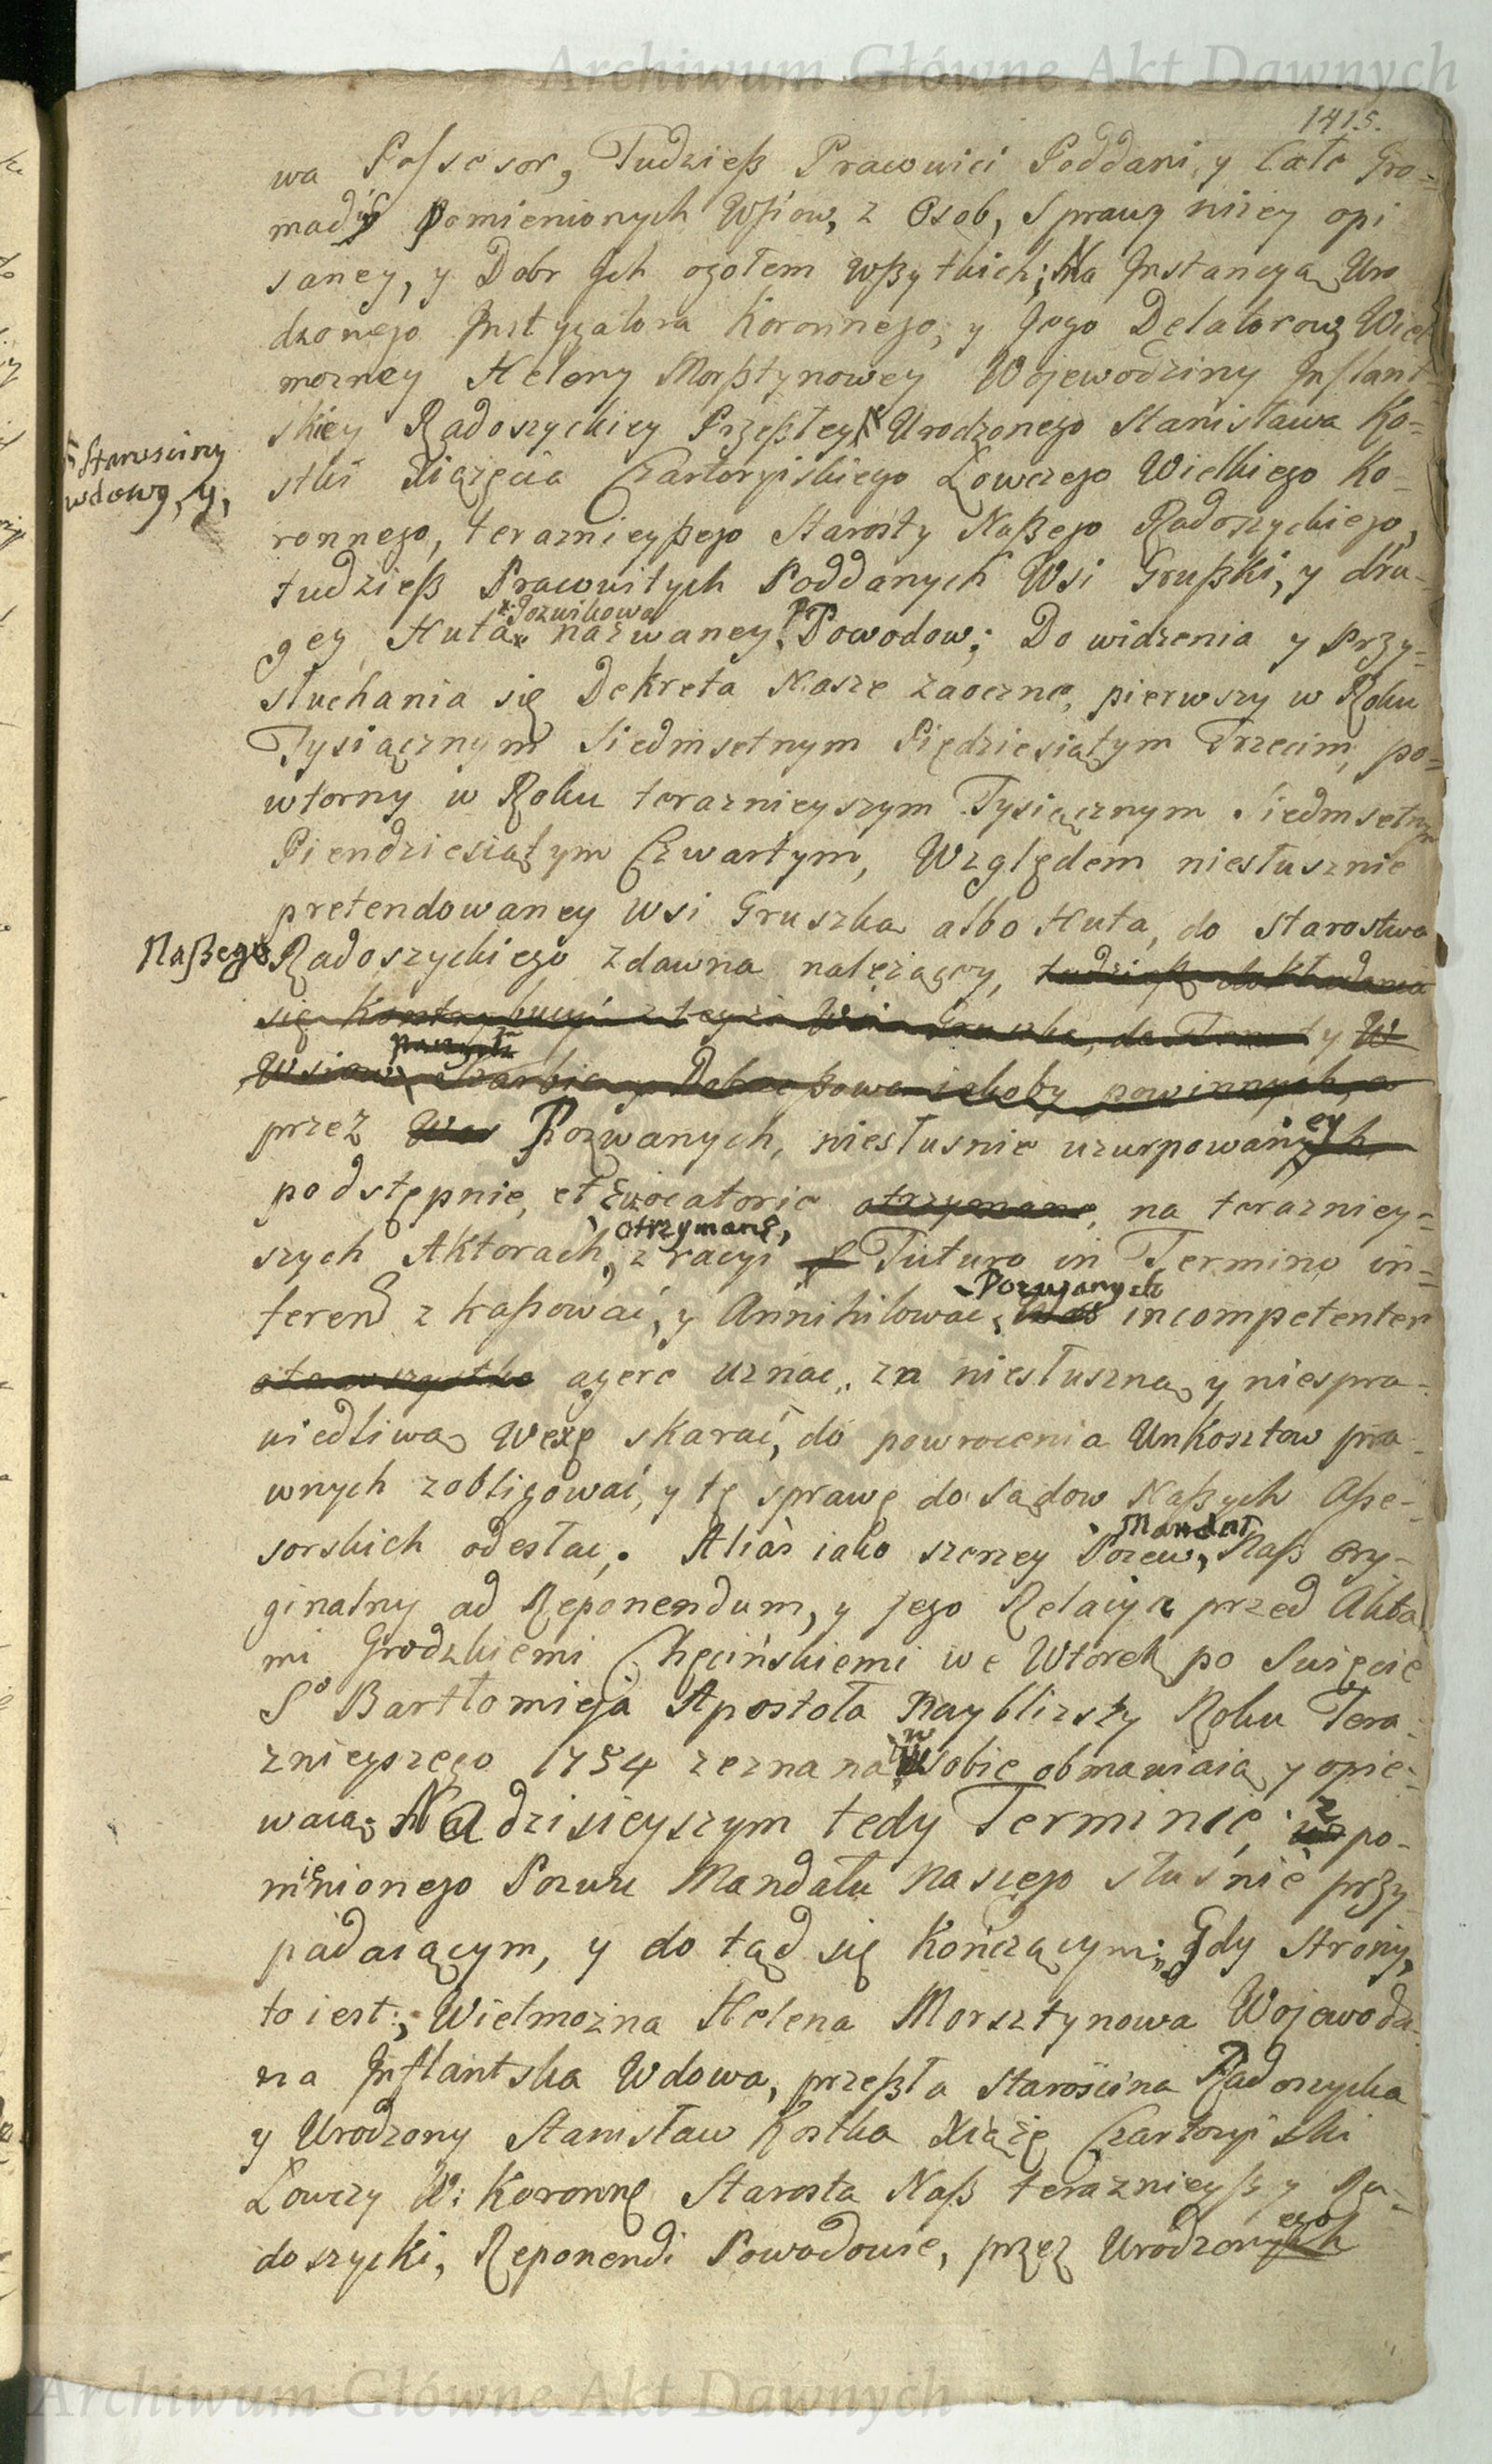 Archiwum Główne Akt Dawnych
1415.
wa Possesor, Tudzieß Pracowici Poddani, y Całe Gro=
mady pomienionych Wsiow, z Osob, Sprawy niżey opi
saney, y Dobr Jch ogołem wßytkich; Na Jnstancyą Uro
dzonego Jnstygatora Koronnego, y Jego Delatorow, Wiel
mozney Heleny Morßtynowey Wojewodziny Jnflant=
skiey Radoszyckiey Przeßłey Urodzonego Stanisława Ko=
Starosciny
wdowy, y,
stki Xiążęcia Czartoryiskiego Łowczego Wielkiego Ko=
ronnego, teraznieyßego Starosty Naßego Radoszyckiego,
tudzieß Pracowitych Poddanych Wsi Grußki, y dru=
Pozwikowa
gey Huta nazwaney, Powodow; Do widzenia y Przy=
słuchania się Dekreta Nasze zaoczne, pierwszy w Roku
Tysiącznym Siedmsetnym Piędziesiątym Trzecim, po=
wtorny w Roku teraznieyszym Tysiącznym Siedmsetnym
Piendziesiątym Czwartym, Względem niesłusznie
pretendowaney Wsi Gruszka albo Huta, do Starostwa
Naßego Radoszyckiego zdawna należący, tudzieß dokładania
się Kontrybucyi z teyże Wsi Gruszka, do y W
Wsiow, jakoby powinnych, a
przez Was Pozwanych, niesłusnie uzurpowanych ey
podstępnie, et Evocatorie otrzymane, na terazniey=
szych Aktorach, otrzymane, z racyi Futuro in Termino in=
ferend zkaßować, y Annihilować, Was Pozwanych incompetenter
oto wszystko agere uznać, za niesłuszną y niespra=
wiedliwą Wexę skarać, do powrocenia Unkosztow pra=
wnych zobligować, y tę sprawę do Sądow Naßych Aße=
sorskich odesłać. Alias iako szerzey Pozew, Mandat Naß Ory=
ginalny ad Reponendum, y jego Relacya przed Akta
mi Grodzkiemi Chęcińskiemi we Wtorek po Święcie
So Bartłomieja Apostoła Nayblizszy Roku Tera=
znieyszego 1754 zeznana w Sobie obmawiaią y opie=
waią; Na dzisieyszym tedy Terminie, z po=
mienionego Pozwu Mandatu naszego słuśnie przy
padaiącym, y do tąd się kończącym; Gdy Strony,
to iest: Wielmozna Helena Morsztynowa Wojewodzi
na Jnflantska Wdowa, przeßła Starościna Radoszycka
y Urodzony Stanisław Kostka Xiążę Czartoryiski
Łowczy W: Koronny Starosta Naß teraznieyßy Ra=
doszycki, Reponendi Powodowie, przez Urodzonych ego
Archiwum Główne Akt Dawnych